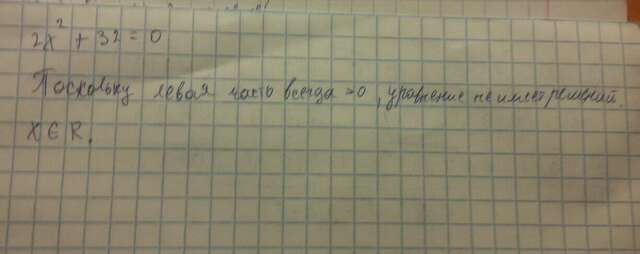 2x² + 32 = 0
Поскольку левая часть всегда >0, уравнение не имеет решений.
X ∈ R.